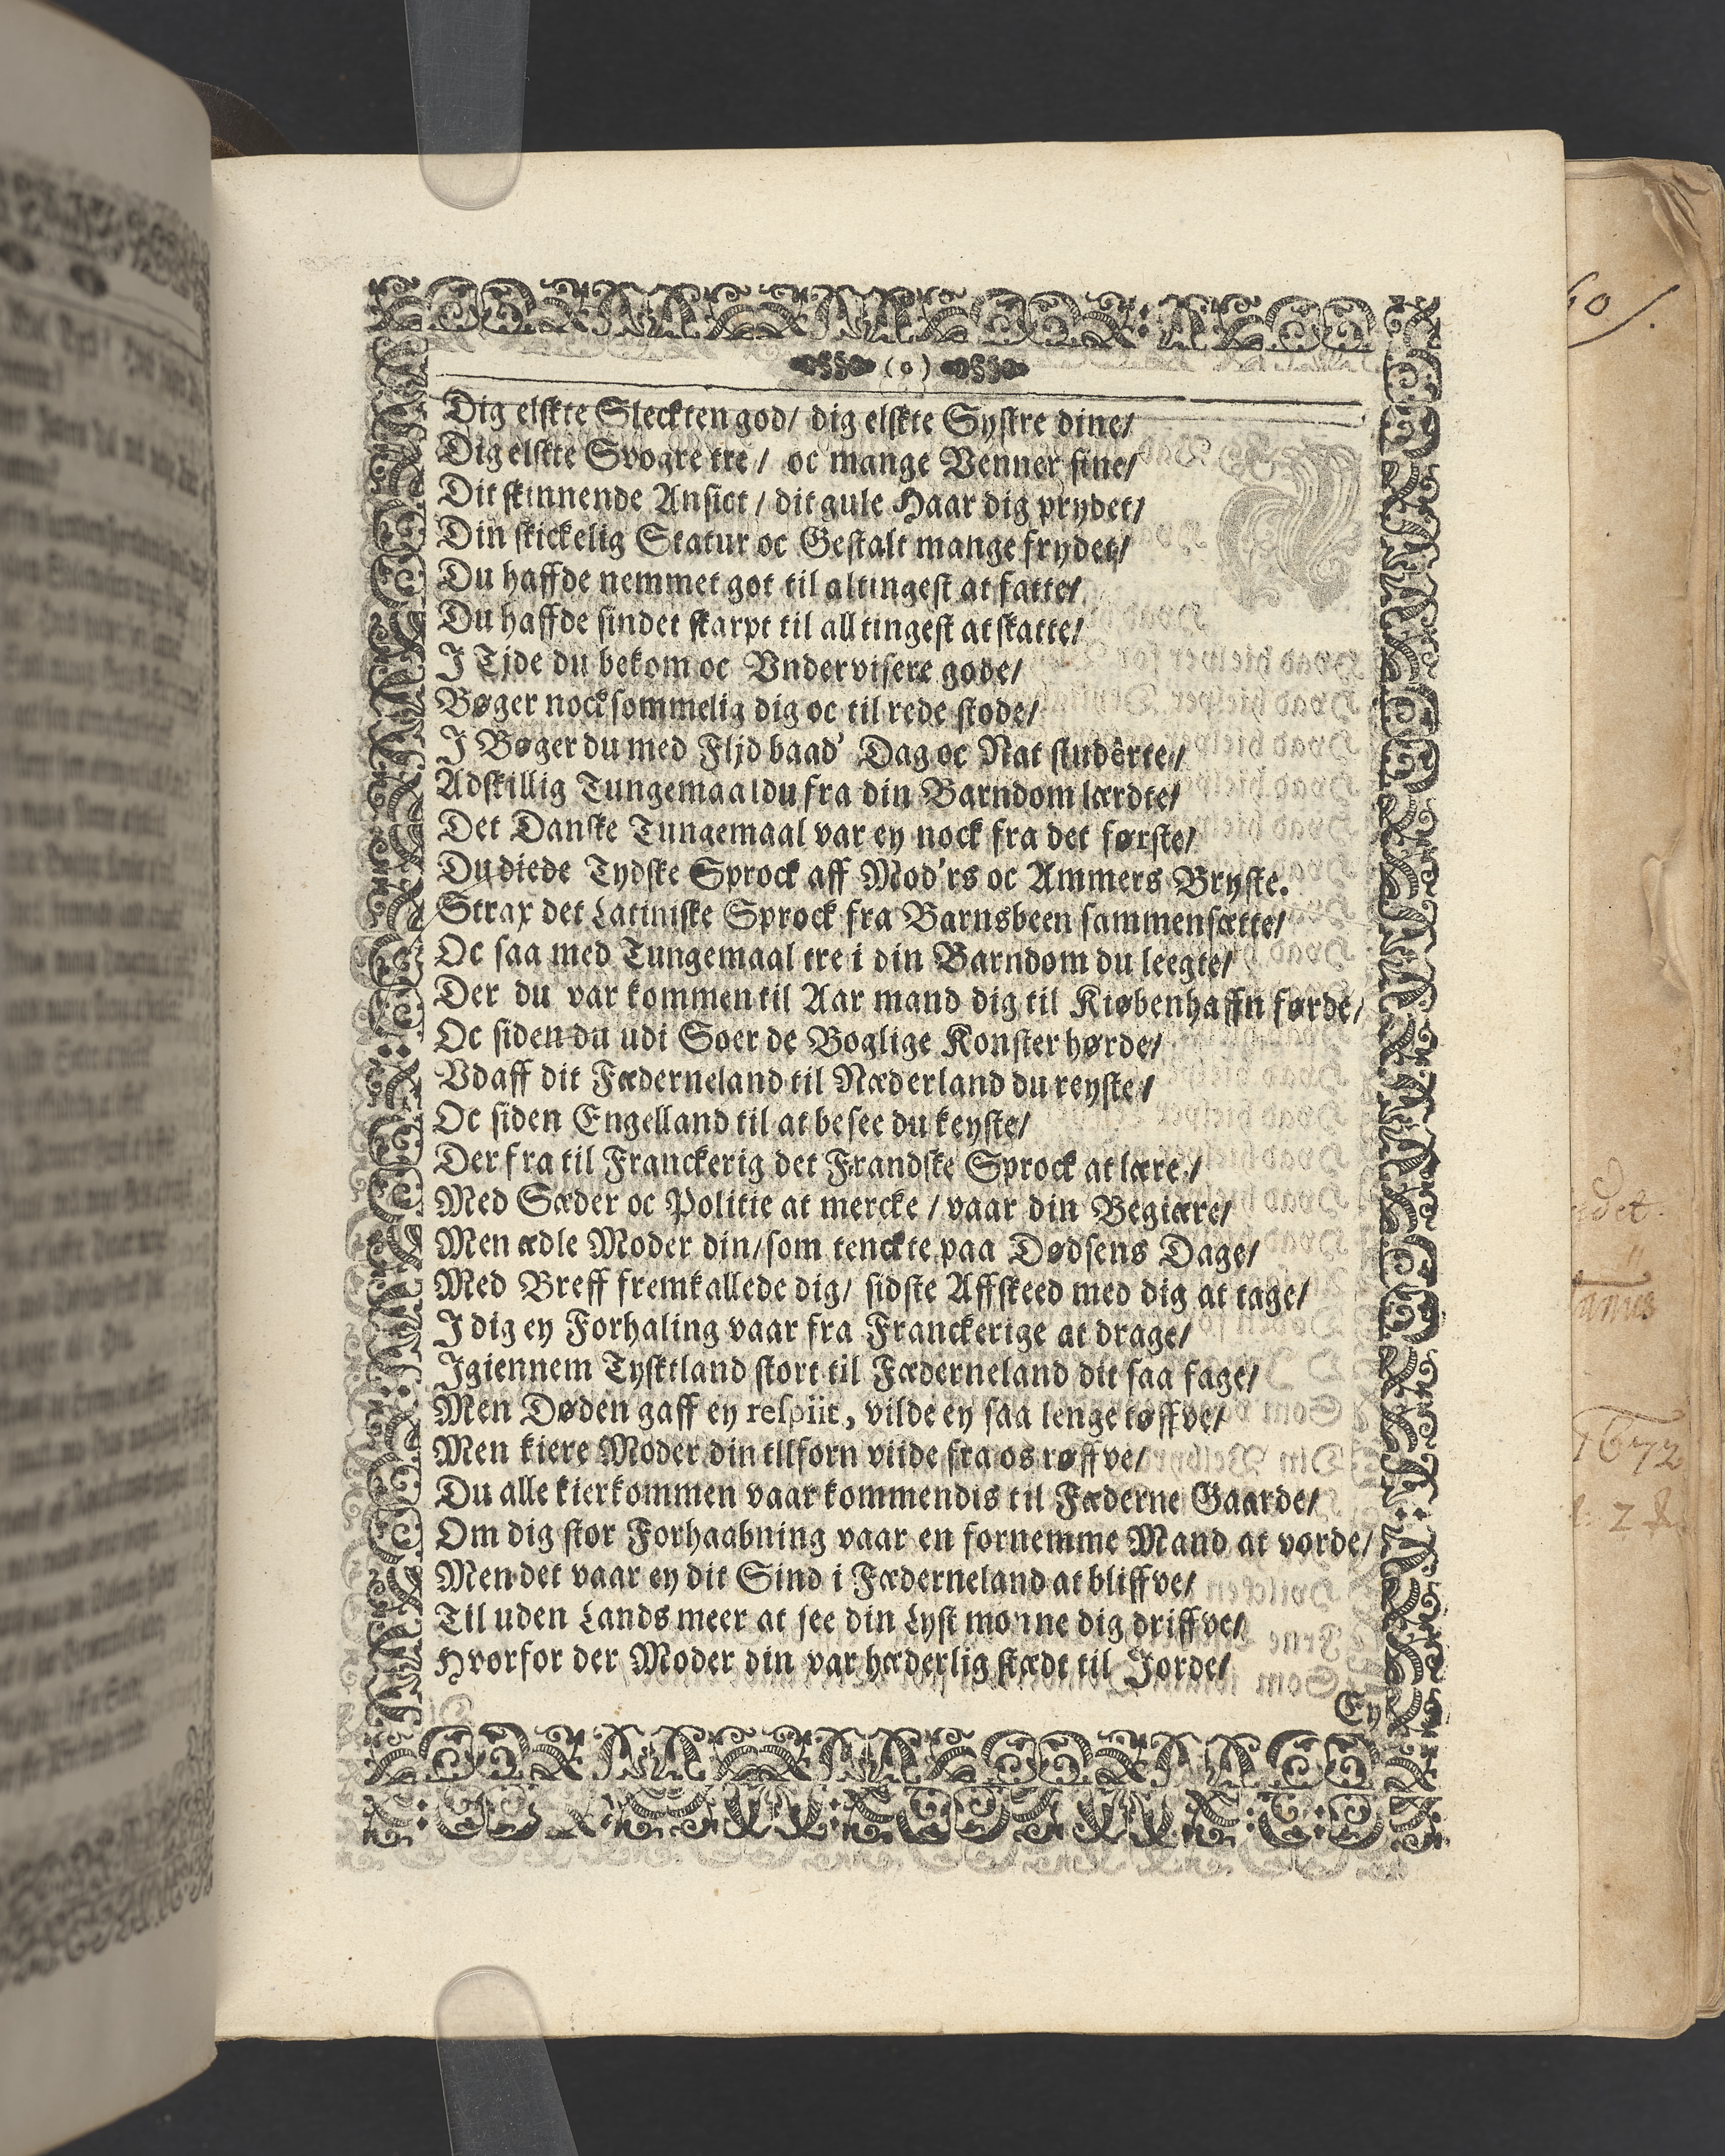 (o)
Dig elskte Sleckten god/ dig elskte Systre dine/
Dig elskte Svogre tre/ oc mange Venner fine/
Dit skinnende Ansict/ dit gule Haar dig prydet/
Din skickelig Statur oc Gestalt mange frydet/
Du haffde nemmet got til altingest at fatte/
Du haffde sindet skarpt til alltingest at skatte/
I Tjde du bekom oc Vndervisere gode/
Bøger nocksommelig dig oc til rede stode/
I Bøger du med Fljd baad' Dag oc Nat studêrte/
Adskillig Tungemaal du fra din Barndom lærdte/
Det Danske Tungemaal var ey nock fra det første/
Du diede Tydske Sprock aff Mod'rs oc Ammers Bryste.
Strax det Latiniske Sprock fra Barnsbeen sammensætte/
Oc saa med Tungemaal tre i din Barndom du leegte/
Der du var kommen til Aar mand dig til Kiøbenhaffn førde/
Oc siden du udi Soer de Boglige Konster hørde/
Vdaff dit Fæderneland til Næderland du reyste/
Oc siden Engelland til at besee du keyste/
Der fra til Franckerig det Frandske Sprock at lære/
Med Sæder oc Politie at mercke/ vaar din Begiære/
Men ædle Moder din/ som tenckte paa Dødsens Dage/
Med Breff fremkallede dig/ sidste Affskeed med dig at tage/
I dig ey Forhaling vaar fra Franckerige at drage/
Igiennem Tysktland stort til Fæderneland dit saa fage/
Men Døden gaff ey respiit, vilde ey saa lenge tøffve/
Men kiere Moder din tilforn viide fra os røffve/
Du alle kierkommen vaar kommendis til Fæderne Gaarde/
Om dig stor Forhaabning vaar en fornemme Mand at vorde/
Men det vaar ey dit Sind i Fæderneland at bliffve/
Til uden Lands meer at see din Lyst monne dig driffve/
Hvorfor der Moder din var hæderlig stædt til Jorde/
Ey
60/.
1672